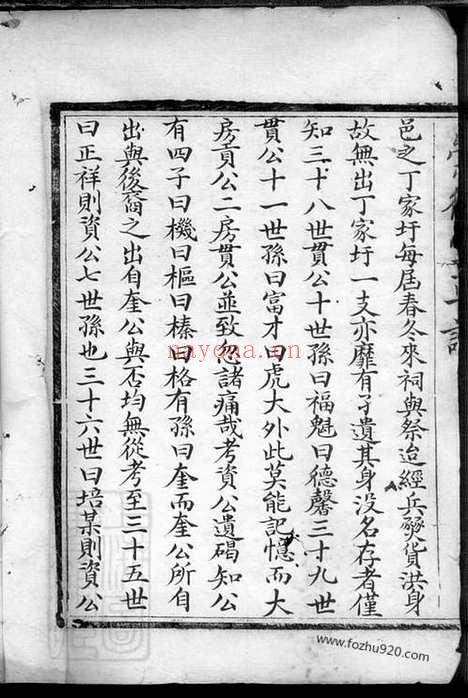 邑之丁家圩每屆春冬來祠與祭迨經兵燹貲洪身
故無出丁家圩一支亦靡有孑遺其身没名存者僅
知三十八世貫公十世孫曰福魁曰德馨三十九世
貫公十一世孫曰富才曰虎大外此莫能記憶而大
房貢公二房貫公並致忽諸痛哉考資公遺碣知公
有四子曰機曰樞曰榛曰格有孫曰奎而奎公所自
出與後裔之出自奎公與否均無從考至三十五世
曰正祥則資公七世孫也三十六世曰培某則資公
nayona.cn
www.fozhu920.com